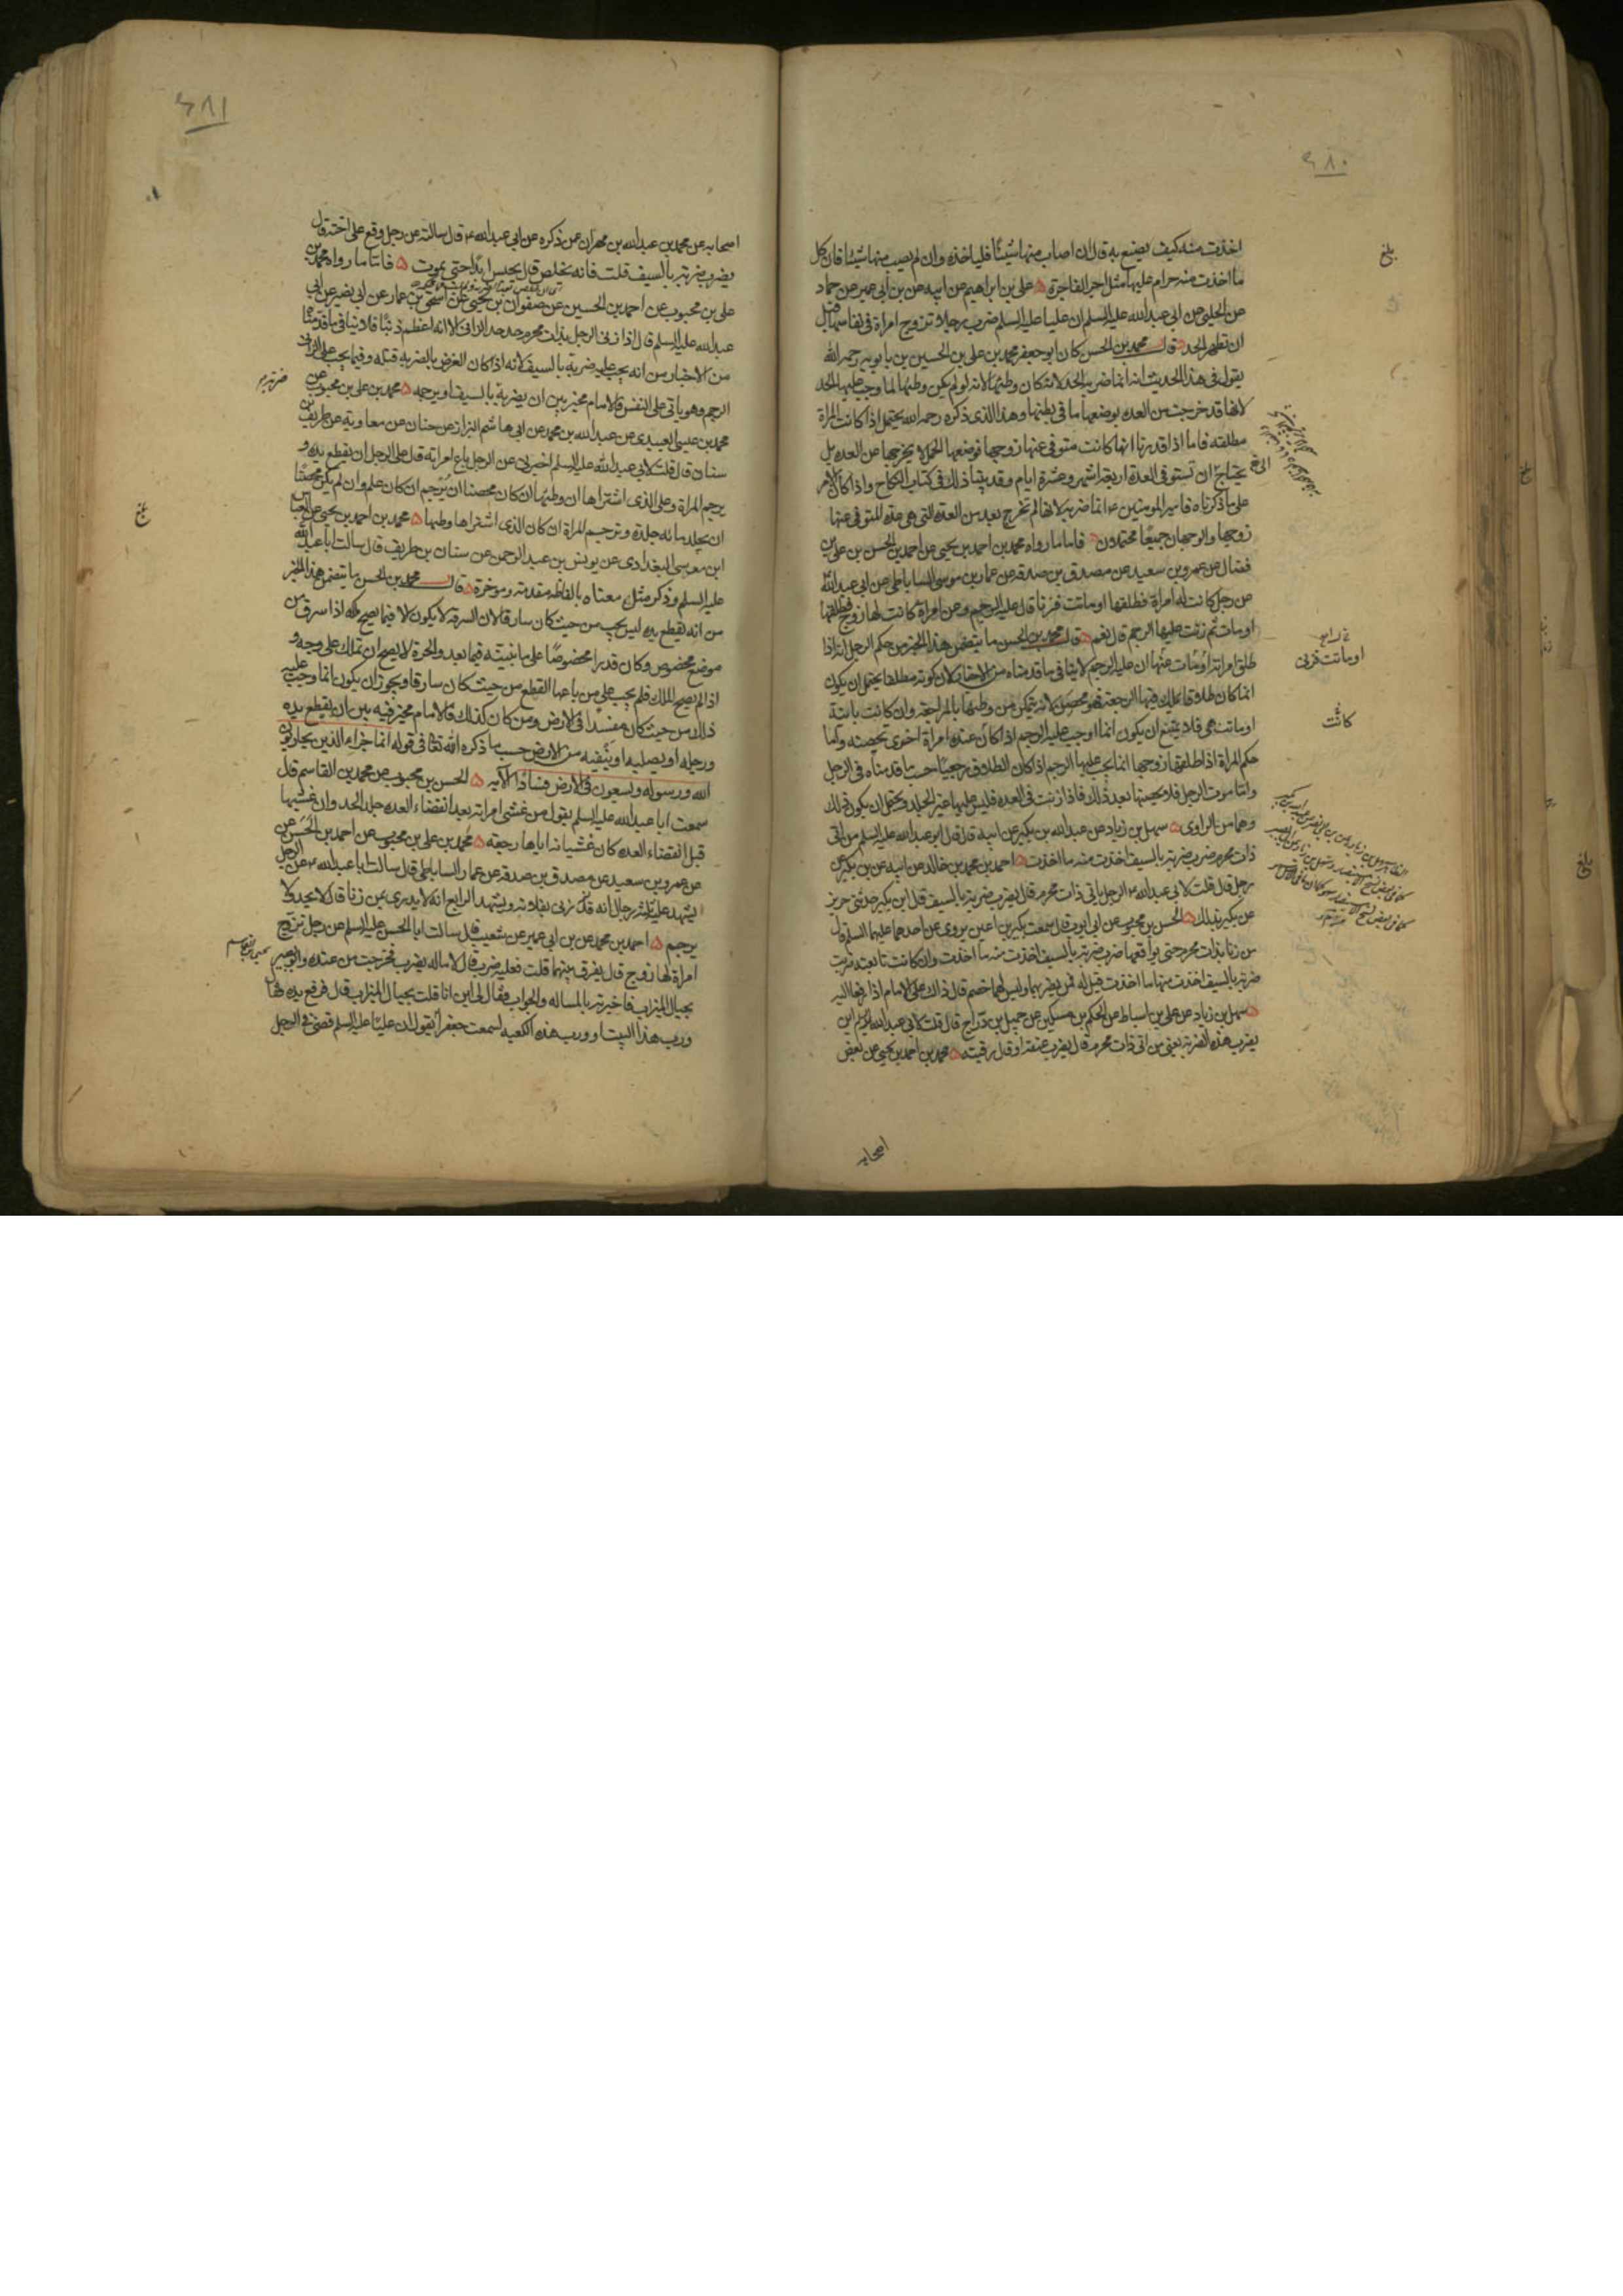 ٤٨٠
اخذت منه كيف يصنع به قال ان اصاب منها شيئا فلياخذه وان لم يصب منها شيئا فان كل
ما اخذت منه حرام عليها مثل اجر الفاجرة ۵ علي بن ابراهيم عن ابيه عن بن ابي عمير عن حماد
عن الحلبي عن ابي عبد الله عليه السلم ان عليا عليه السلم ضرب رجلا تزوج امراة في نفاسها قبل
ان تطهر الحد ۵ قال محمد بن الحسن كان ابو جعفر محمد بن علي بن الحسين بن بابويه رحمه الله
يقول في هذا الحديث انه انما ضربه الحد لانه كان وطئها لانه لو لم يكن وطئها لما وجب عليها الحد
لانها قد خرجت من العده بوضعها ما في بطنها وهذا الذي ذكره رحمه الله يحتمل اذا كانت المراة
مطلقه فاما اذا قدرنا انها كانت متوفى عنها زوجها فوضعها الحمل لا يخرجها عن العده بل
تحتاج ان تستوفي العدة اربعة اشهر وعشرة ايام وقد بينا ذلك في كتاب النكاح واذا كان الامر
على ما ذكرناه فامير المومنين ع انما ضربه لانها لم تخرج بعد من العده التي هي عدة المتوفى عنها
زوجها والوجهان جميعا محتملان ۵ فاما ما رواه محمد بن احمد بن يحيى عن احمد بن الحسن بن علي بن
فضال عن عمرو بن سعيد عن مصدق بن صدقه عن عمار بن موسى الساباطي عن ابي عبد الله
عن رجل كانت له امراة فطلقها او ماتت فزنا قال عليه الرجم وعن امراة كانت لها زوج فطلقها
او مات ثم زنت عليها الرجم قال نعم ۵ قال محمد بن الحسن ما يتضمن هذا الخبر من حكم الرجل انه اذا
طلق امراته او ماتت عنها ان عليه الرجم لا ينافي ما قدمناه من الاخبار لان كونه مطلقا يحتمل ان يكون
انما كان طلاقا يملك فيها الرجعة فهو محصن لانه يتمكن من وطئها بالمراجعة وان كانت باينة
او ماتت هي فلا يمتنع ان يكون انما اوجب عليه الرجم اذا كان عنده امراة اخرى تحصنه واما
حكم المراة اذا طلقها زوجها انما يجب عليها الرجم اذا كان الطلاق رجعيا حسب ما قدمناه في الرجل
واما موت الرجل فلا يحصنها بعد ذلك فاذا زنت في العده فليس عليها غير الجلد ويحتمل ان يكون ذلك
وهما من الراوي ۵ سهل بن زياد عن عبد الله بن بكير عن ابيه قال قال ابو عبد الله عليه السلم من اتى
ذات محرم ضرب ضربة بالسيف اخذت منه ما اخذت ۵ احمد بن محمد بن خالد عن ابيه عن بن بكير عن
رجل قال قلت لابي عبد الله ع الرجل ياتي ذات محرم قال يضرب ضربة بالسيف قال ابن بكير حدثني حريز
عن بكير بذلك ۵ الحسن بن محبوب عن ابي ايوب قال سمعت بكير بن اعين يروي عن احدهما عليهما السلم قال
من زنا بذات محرم حتى يواقعها ضرب ضربة بالسيف اخذت منه ما اخذت وان كانت تابعته ضربت
ضربة بالسيف اخذت منها ما اخذت قيل له فمن يضربهما وليس لهما خصم قال ذاك على الامام اذا رفعا اليه
۵ سهل بن زياد عن علي بن اسباط عن الحكم بن مسكين عن جميل بن دراج قال قلت لابي عبد الله ع اين
يضرب هذه الضربة يعني من اتى ذات محرم قال يضرب عنقه او قال رقبته ۵ محمد بن احمد بن يحيى عن بعض
اصحابه
بلغ
او ماتت فزنى
كانت
٤٨١
اصحابه عن محمد بن عبد الله بن مهران عمن ذكره عن ابي عبد الله ع قال سالته عن رجل وقع على اخته قال
يضرب ضربة بالسيف قلت فانه يخلص قال يحبس ابدا حتى يموت ۵ فاما ما رواه محمد بن
علي بن محبوب عن احمد بن الحسين عن صفوان بن يحيى عن اسحق بن عمار عن ابي بصير عن ابي
عبد الله عليه السلم قال اذا زنى الرجل بذات محرم حد حد الزاني الا انه اعظم ذنبا فلا ينافي ما قدمناه
من الاخبار من انه يجب عليه ضربة بالسيف لانه اذا كان الغرض بالضربة قتله وفيما يجب على الزاني
الرجم وهو ياتي على النفس فالامام مخير بين ان يضربه بالسيف او يرجمه ۵ محمد بن علي بن محبوب عن
محمد بن عيسى العبيدي عن عبد الله بن محمد عن ابي هاشم البزاز عن حنان عن معاوية عن طريف بن
سنان قال قلت لابي عبد الله عليه السلم اخبرني عن الرجل باع امراته قال على الرجل ان يقطع يده و
يرجم المراة وعلى الذي اشتراها ان وطئها ان كان محصنا ان يرجم ان كان علم وان لم يكن محصنا
ان يجلد مائه جلدة وترجم المراة ان كان الذي اشتراها وطئها ۵ محمد بن احمد بن يحيى عن العباس
ابن موسى البغدادي عن يونس بن عبد الرحمن عن سنان بن طريف قال سالت ابا عبد الله
عليه السلم وذكر مثل معناه بالفاظه مقدمة وموخرة ۵ قال محمد بن الحسن ما يتضمن هذا الخبر
من انه يقطع يده ليس يجب من حيث كان سارقا لان السرقه لا يكون الا فيما يصح ملكه اذا سرق من
موضع مخصوص وكان قدرا مخصوصا على ما نبينه فيما بعد والحرة لا يصح ان تملك على وجه و
اذا لم يصح الملك فلم يجب على من باعها القطع من حيث كان سارقا ويجوز ان يكون انما وجب عليه
ذلك من حيث كان مفسدا في الارض ومن كان كذلك فالامام مخير فيه بين ان يقطع يده
ورجله او يصلبه او ينفيه من الارض حسب ما ذكره الله تعالى في قوله انما جزاء الذين يحاربون
الله ورسوله ويسعون في الارض فسادا الآية ۵ الحسن بن محبوب عن محمد بن القاسم قال
سمعت ابا عبد الله عليه السلم يقول من غشى امراته بعد انقضاء العده جلد الحد وان غشيها
قبل انقضاء العده كان غشيانه اياها رجعة ۵ محمد بن علي بن محبوب عن احمد بن الحسن عن
عن عمرو بن سعيد عن مصدق بن صدقه عن عمار الساباطي قال سالت ابا عبد الله ع عن الرجل
يشهد عليه ثلثة رجال انه قد زنى بفلانة ويشهد الرابع انه لا يدري بمن زنا قال لا يحد ولا
يرجم ۵ احمد بن محمد عن بن ابي عمير عن شعيب قال سالت ابا الحسن عليه السلم عن رجل تزوج
امراة لها زوج قال يفرق بينهما قلت فعليه ضرب قال لا ماله يضرب فخرجت من عنده وابو بصير
بحيال الميزاب فاخبرته بالمساله والجواب فقال لي اين انا قلت بحيال الميزاب قال فرفع يده فقال
ورب هذا البيت او ورب هذه الكعبه لسمعت جعفرا يقول ان عليا عليه السلم قضى في الرجل
بلغ